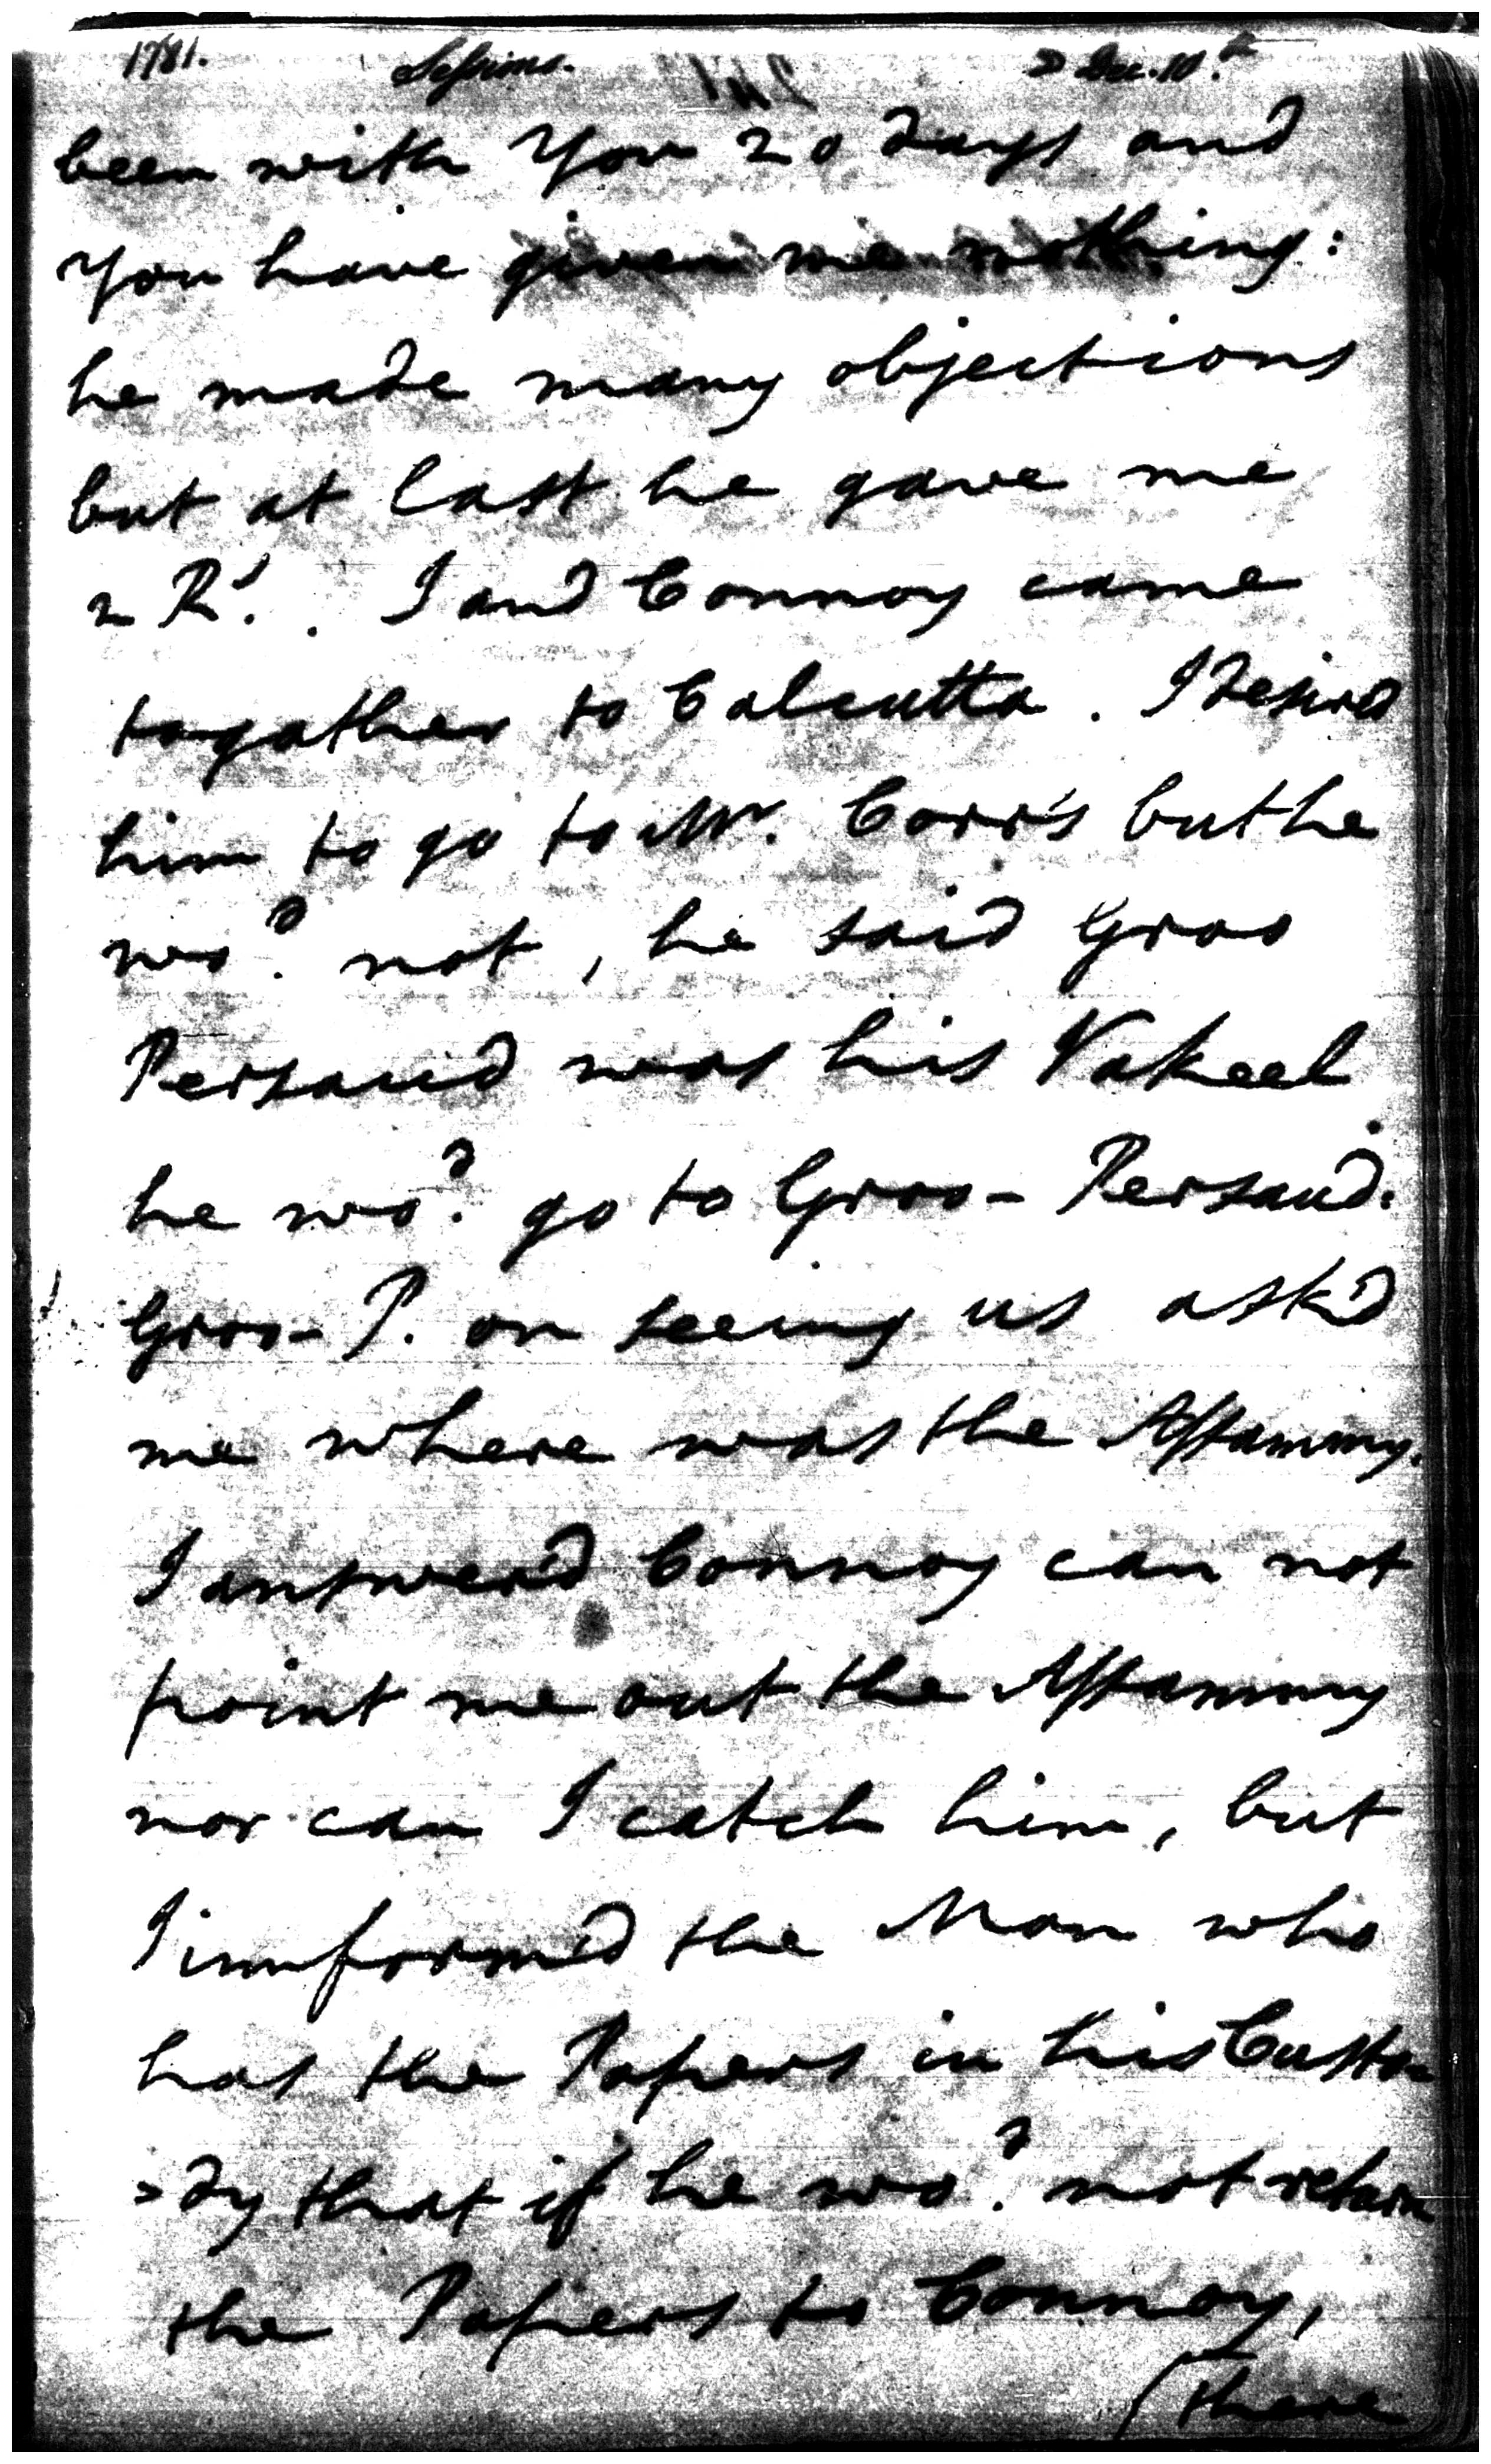 1781. Sessions. Dec. 10.th
been with You 20 days and
You have given me nothing:
he made many objections
but at last he gave me
2 Rs. . I and Connoy came
togather to Calcutta . I desired
him to go to Mr. Corr's but he
wod. not , he said Groo
Persaud was his Vakeel
he wod. go to Groo - Persaud.
Groo - P. on seeing us ask'd
me where was the Assammy.
I answer'd Connoy can not
point me out the Assammy
nor can I catch him , but
I innform'd the Man who
has the Papers in his Custo
=dy that if he wod. not return
the Papers to Connoy,
(there